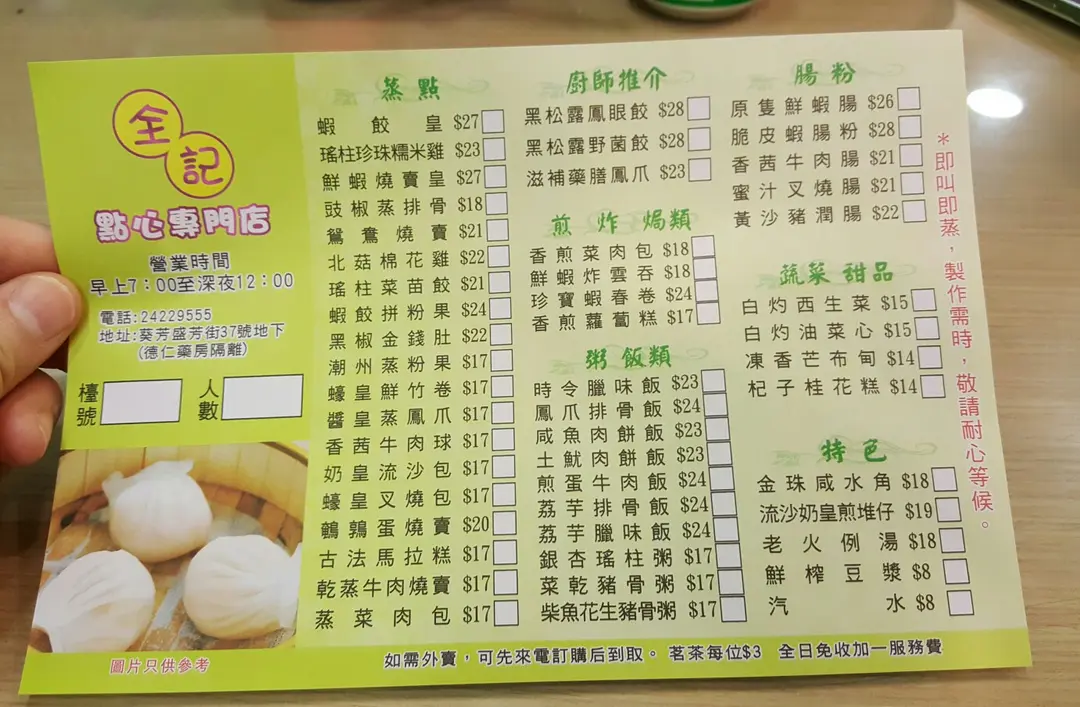 全記
點心專門店
營業時間
早上7：00至深夜12：00
電話:24229555
地址:葵芳盛芳街37號地下
(德仁藥房隔離)
檯號
人數
圖片只供參考
蒸點
蝦餃皇 $27
瑤柱珍珠糯米雞 $23
鮮蝦燒賣皇 $27
豉椒蒸排骨 $18
鴛鴦燒賣 $21
北菇棉花雞 $22
瑤柱菜苗餃 $21
蝦餃拼粉果 $24
黑椒金錢肚 $22
潮州蒸粉果 $17
蠔皇鮮竹卷 $17
醬皇蒸鳳爪 $17
香茜牛肉球 $17
奶皇流沙包 $17
蠔皇叉燒包 $17
鵪鶉蛋燒賣 $20
古法馬拉糕 $17
乾蒸牛肉燒賣 $17
蒸菜肉包 $17
廚師推介
黑松露鳳眼餃 $28
黑松露野菌餃 $28
滋補藥膳鳳爪 $23
煎炸焗類
香煎菜肉包 $18
鮮蝦炸雲吞 $18
珍寶蝦春卷 $24
香煎蘿蔔糕 $17
粥飯類
時令臘味飯 $23
鳳爪排骨飯 $24
咸魚肉餅飯 $23
土魷肉餅飯 $23
煎蛋牛肉飯 $24
荔芋排骨飯 $24
荔芋臘味飯 $24
銀杏瑤柱粥 $17
菜乾豬骨粥 $17
柴魚花生豬骨粥 $17
腸粉
原隻鮮蝦腸 $26
脆皮蝦腸粉 $28
香茜牛肉腸 $21
蜜汁叉燒腸 $21
黃沙豬潤腸 $22
蔬菜甜品
白灼西生菜 $15
白灼油菜心 $15
凍香芒布甸 $14
杞子桂花糕 $14
特色
金珠咸水角 $18
流沙奶皇煎堆仔 $19
老火例湯 $18
鮮榨豆漿 $8
汽水 $8
*即叫即蒸，製作需時，敬請耐心等候。
如需外賣，可先來電訂購后到取。 茗茶每位$3 全日免收加一服務費